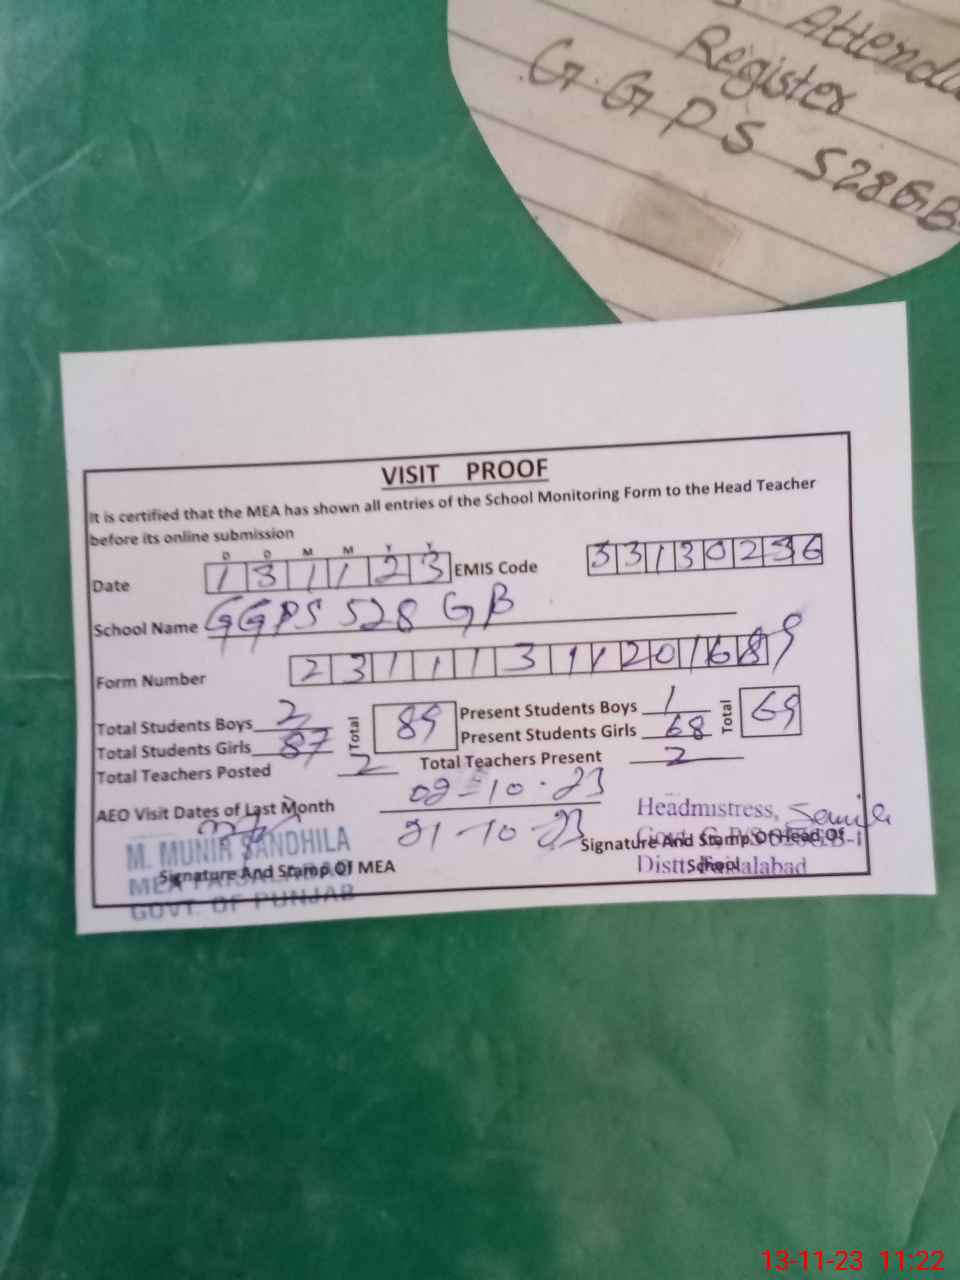 Attenda
Register
G.G.P.S 528G.B
VISIT PROOF
It is certified that the MEA has shown all entries of the School Monitoring Form to the Head Teacher
before its online submission
D D M M Y Y
Date 131123 EMIS Code 33130256
School Name GGPS 528 GB
Form Number 23111311201689
Total Students Boys 2 Total 89 Present Students Boys 1 Total 69
Total Students Girls 87 Present Students Girls 68
Total Teachers Posted 2 Total Teachers Present 2
AEO Visit Dates of Last Month 02-10-23
21-10-23
Headmistress,
M. MUNIR SANDHILA
Signature And Stamp Of Head Of
School
Distt: Faisalabad
Signature And Stamp Of MEA
MEA FAISALABAD
GOVT. OF PUNJAB
13-11-23 11:22